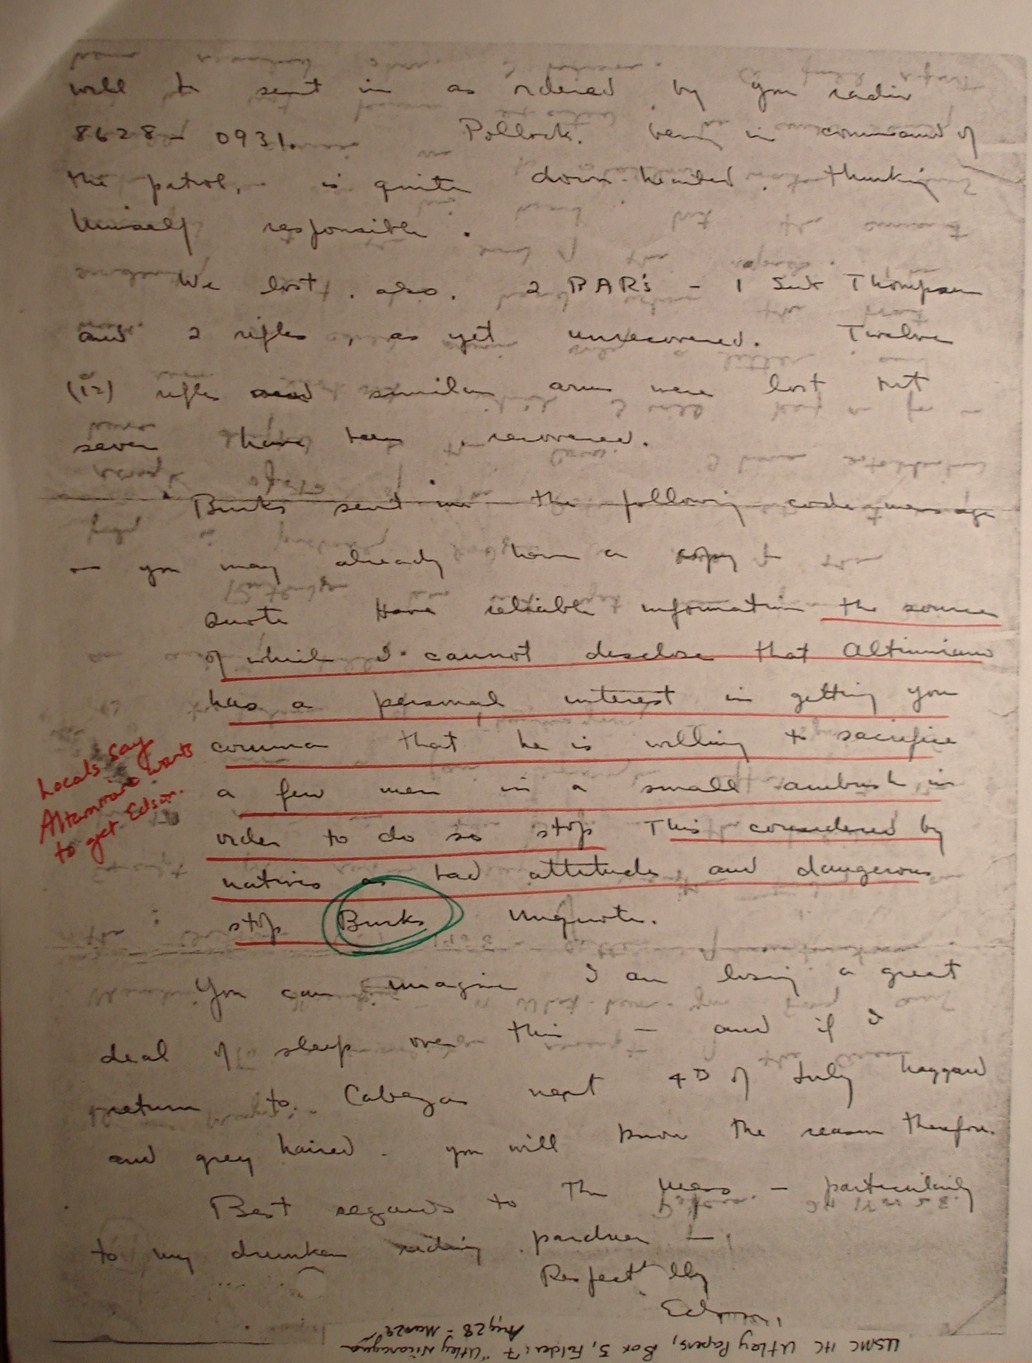 will be sent in as ordered by you radio
8628 - 0931. Pollock, being in command of
the patrol, is quite down-hearted, thinking
himself responsible.
We lost, also, 2 BAR's - 1 Sub Thompson
and 2 rifles, as yet unrecovered. Twelve
(12) rifles and similar arms were lost but
seven have been recovered.
Burks sent me the following code message
- you may already have a copy
Quote Have reliable information the source
of which I cannot disclose that Altamirano
has a personal interest in getting you
comma that he is willing to sacrifice
a few men in a small ambush in
order to do so stop This considered by
natives as bad attitude and dangerous
stop Burks Unquote.
Locals say
Altamirano wants
to get Edson.
You can imagine I am losing a great
deal of sleep over this - and if I
return to Cabezas next 4th of July haggard
and grey haired, you will know the reason therefore.
Best regards to the mess - particularly
to my drunken riding pardner -
Respectfully
Edson.
USMC HC Utley Papers, Box 3, Folder: 7 "Utley Nicaragua
Aug 28 - Mar 29